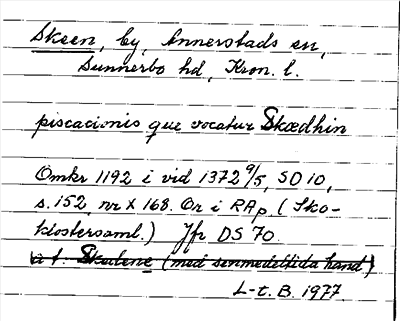 Skeen, by, Annerstads sn,
Sunnerbo hd, Kron. l.
piscacionis que vocatur Skædhin
Omkr 1192 i vid 1372 9/5, SD 10,
s. 152, nr X 168. Or i RAp (Sko-
klostersaml.) Jfr DS 70.
a t. Skalene (med senmedeltida hand)
L-t. B. 1977.